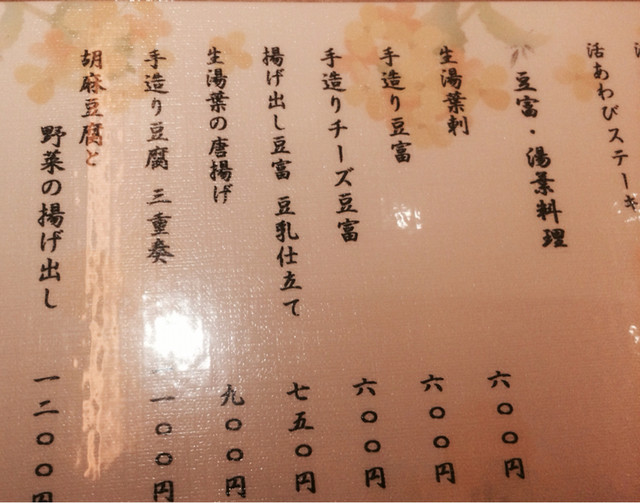 活あわびステーキ
豆富・湯葉料理
生湯葉刺 六〇〇円
手造り豆富 六〇〇円
手造りチーズ豆富 六〇〇円
揚げ出し豆富 豆乳仕立て 七五〇円
生湯葉の唐揚げ 九〇〇円
手造り豆腐 三重奏 一一〇〇円
胡麻豆腐と
野菜の揚げ出し 一二〇〇円